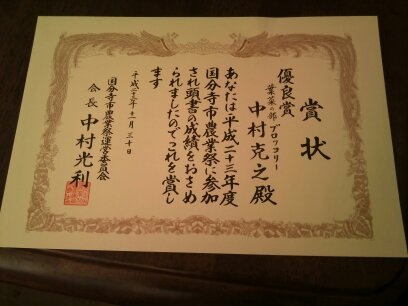 賞状
優良賞
葉茎菜の部 ブロッコリー
中村克之殿
あなたは平成二十三年度
国分寺市農業祭に参加
され頭書の成績をおさめ
られましたのでこれを賞し
ます
平成二十三年十一月二十日
国分寺市農業祭運営委員会
会長 中村光利